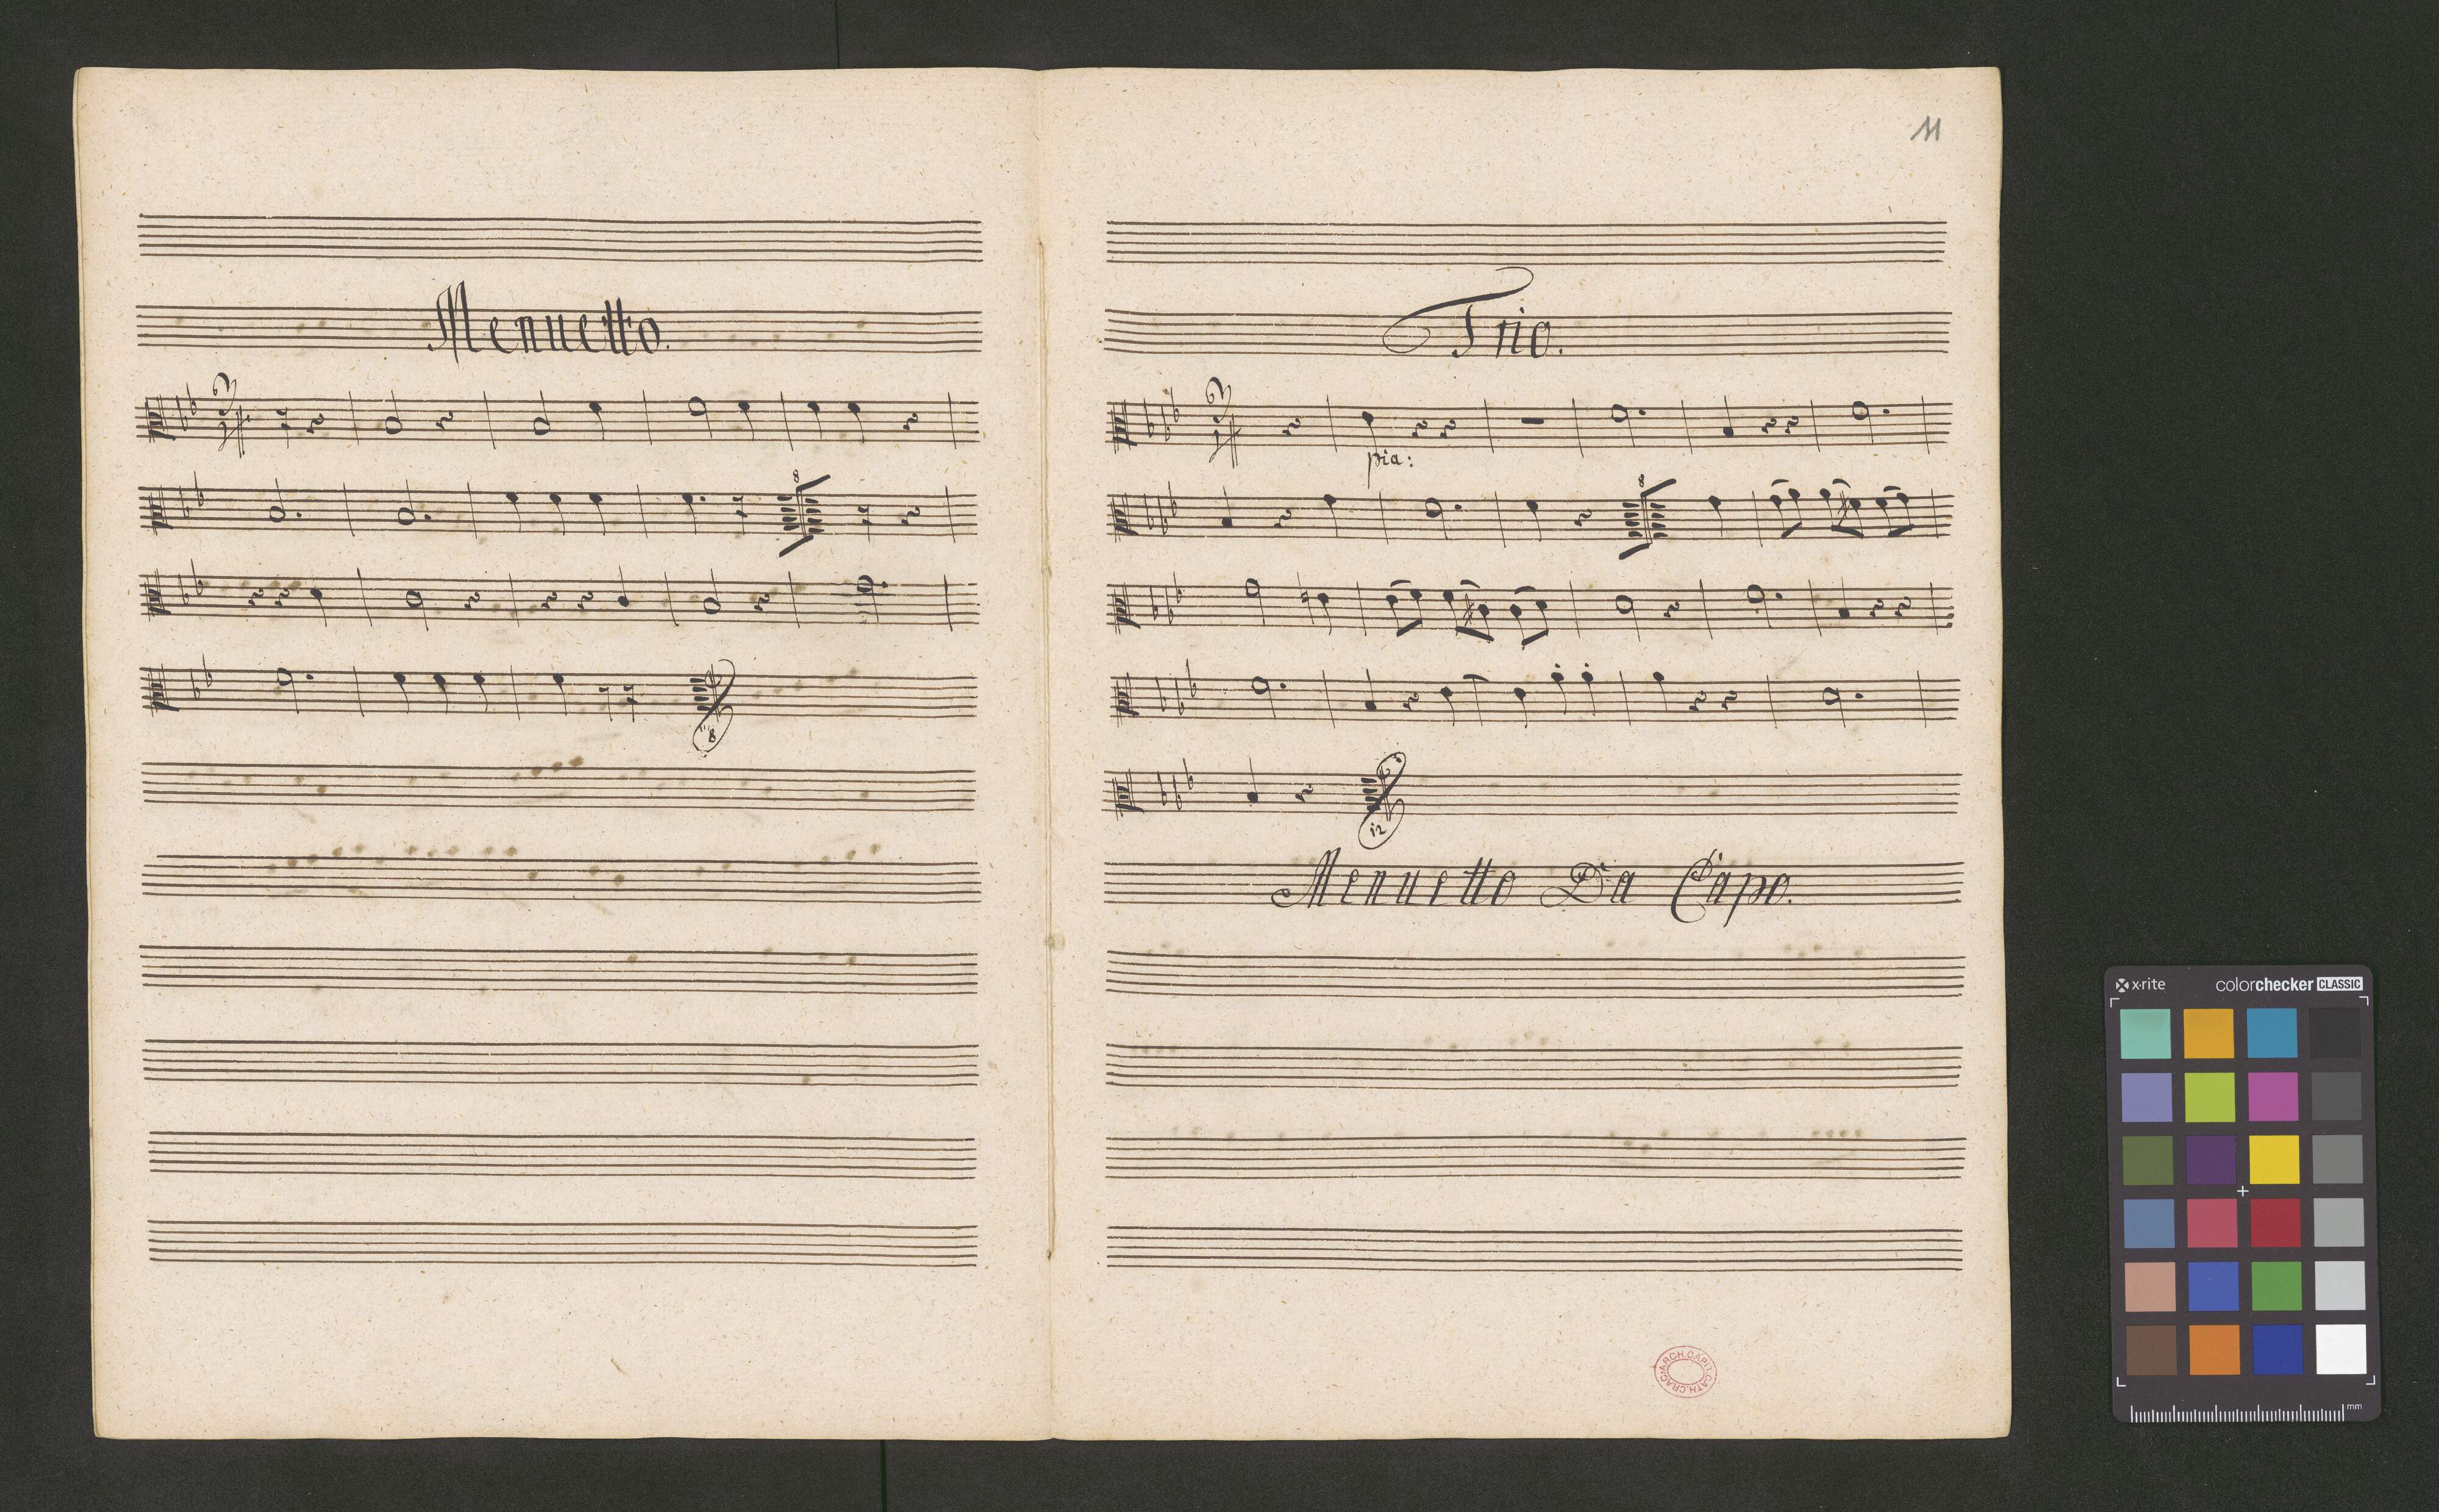 Menuetto.
8
8
11
Trio.
pia:
8
12
Menuetto Da Capo.
ARCH.CAPIT.CATH.CRAC
x-rite colorchecker CLASSIC
mm